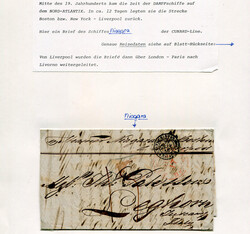 Mitte des 19. Jahrhunderts kam die Zeit der DAMPFschiffe auf
dem NORD-ATLANTIK. In ca. 12 Tagen legten sie die Strecke
Boston bzw. New York - Liverpool zurück.
Hier ein Brief des Schiffes Niagara der CUNARD-Line.
Genaue Reisedaten siehe auf Blatt-Rückseite
Von Liverpool wurden die Briefe dann über London - Paris nach
Livorno weitergeleitet.
Niagara
Leghorn
Tuscany
Italy